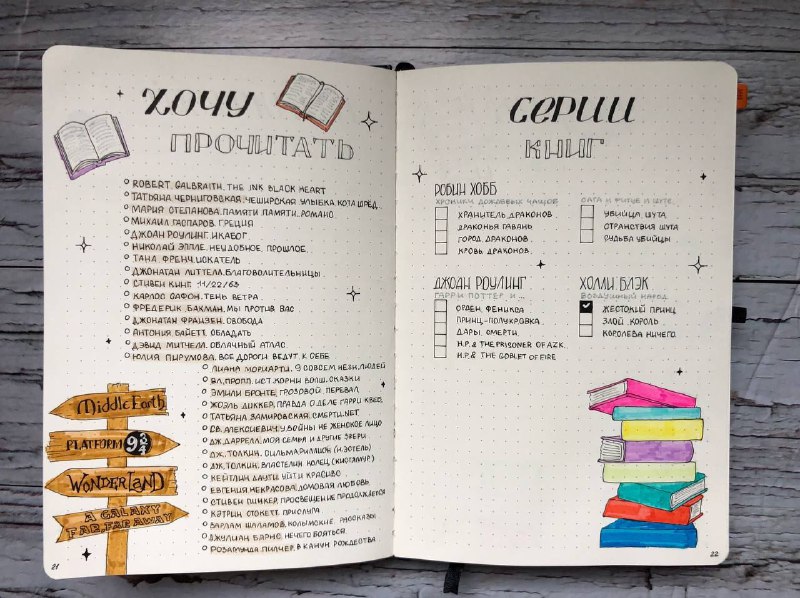 ХОЧУ
ПРОЧИТАТЬ
ROBERT GALBRAITH. THE INK BLACK HEART
ТАТЬЯНА ЧЕРНИГОВСКАЯ. ЧЕШИРСКАЯ УЛЫБКА КОТА ШРЁД.
МАРИЯ СТЕПАНОВА. ПАМЯТИ ПАМЯТИ. РОМАНС
МИХАИЛ ГАСПАРОВ. ГРЕЦИЯ
ДЖОАН РОУЛИНГ. ИКАБОГ.
НИКОЛАЙ ЭППЛЕ. НЕУДОБНОЕ ПРОШЛОЕ
ТАНА ФРЕНЧ. ИСКАТЕЛЬ
ДЖОНАТАН ЛИТТЕЛЛ. БЛАГОВОЛИТЕЛЬНИЦЫ.
СТИВЕН КИНГ. 11/22/63
КАРЛОС САФОН. ТЕНЬ ВЕТРА.
ФРЕДЕРИК БАКМАН. МЫ ПРОТИВ ВАС
ДЖОНАТАН ФРАНЗЕН. СВОБОДА
АНТОНИЯ БАЙЕТТ. ОБЛАДАТЬ
ДЭВИД МИТЧЕЛЛ. ОБЛАЧНЫЙ АТЛАС.
ЮЛИЯ ПИРУМОВА. ВСЕ ДОРОГИ ВЕДУТ К СЕБЕ
ЛИАНА МОРИАРТИ. 9 СОВСЕМ НЕЗН. ЛЮДЕЙ
ВЛ. ПРОПП. ИСТ. КОРНИ ВОЛШ. СКАЗКИ
ЭМИЛИ БРОНТЕ. ГРОЗОВОЙ ПЕРЕВАЛ
ЖОЭЛЬ ДИККЕР. ПРАВДА О ДЕЛЕ ГАРРИ КВЕБ.
ТАТЬЯНА ЗАМИРОВСКАЯ. СМЕРТИ.NET
СВ. АЛЕКСИЕВИЧ. У ВОЙНЫ НЕ ЖЕНСКОЕ ЛИЦО
ДЖ. ДАРРЕЛЛ. МОЯ СЕМЬЯ И ДРУГИЕ ЗВЕРИ
ДЖ. ТОЛКИН. СИЛЬМАРИЛЛИОН (Н. ЭСТЕЛЬ)
ДЖ. ТОЛКИН. ВЛАСТЕЛИН КОЛЕЦ (КИСТЯМУР.)
КЕЙТЛИН ДАУТИ. УЙТИ КРАСИВО
ЕВГЕНИЯ НЕКРАСОВА. ДОМОВАЯ ЛЮБОВЬ
СТИВЕН ПИНКЕР. ПРОСВЕЩЕНИЕ ПРОДОЛЖАЕТСЯ
КЭТРИН СТОКЕТТ. ПРИСЛУГА
ВАРЛАМ ШАЛАМОВ. КОЛЫМСКИЕ РАССКАЗЫ
ДЖУЛИАН БАРНС. НЕЧЕГО БОЯТЬСЯ.
РОЗАМУНДА ПИЛЧЕР. В КАНУН РОЖДЕСТВА
Middle Earth
PLATFORM 9 3/4
WONDERLAND
A GALAXY
FAR, FAR AWAY
21
СЕРИИ
КНИГ
РОБИН ХОББ
ХРОНИКИ ДОЖДЕВЫХ ЧАЩОБ
ХРАНИТЕЛЬ ДРАКОНОВ.
ДРАКОНЬЯ ГАВАНЬ
ГОРОД ДРАКОНОВ.
КРОВЬ ДРАКОНОВ.
САГА О ФИТЦЕ И ШУТЕ
УБИЙЦА ШУТА
СТРАНСТВИЯ ШУТА
СУДЬБА УБИЙЦЫ
ДЖОАН РОУЛИНГ
ГАРРИ ПОТТЕР И...
ОРДЕН ФЕНИКСА
ПРИНЦ-ПОЛУКРОВКА.
ДАРЫ СМЕРТИ.
H.P. & THE PRISONER OF AZK.
H.P. & THE GOBLET OF FIRE
ХОЛЛИ БЛЭК
ВОЗДУШНЫЙ НАРОД
ЖЕСТОКИЙ ПРИНЦ
ЗЛОЙ КОРОЛЬ
КОРОЛЕВА НИЧЕГО.
22